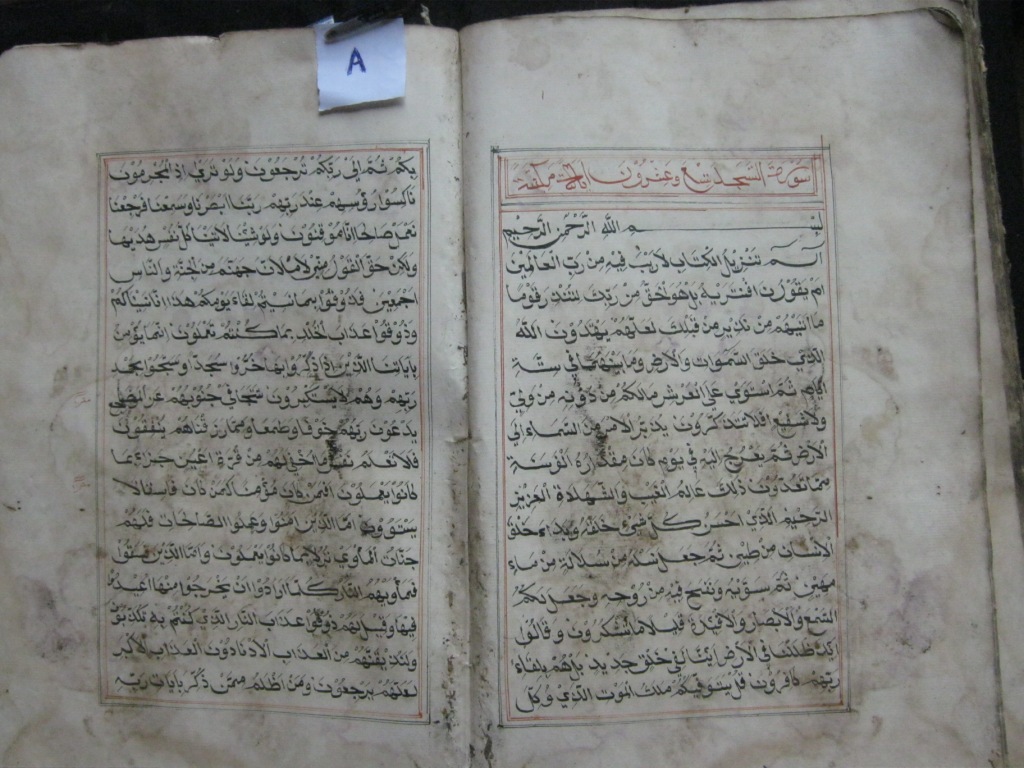 سورة السجد تسع وعشرون اياة مكية
بسم الله الرحمن الرحيم
آلم تنزيل الكتاب لاريب فيه من رب العالمين
ام يقولون افتريه بل هو الحق من ربك لتنذر قوما
ما اتيهم من نذير من قبلك لعلهم يهتدون الله
الذي خلق السموات والارض وما بينهما في ستة
ايام ثم استوي علي العرش مالكم من دونه من ولي
ولا شفيع افلا تتذكرون يدبر الامر من السماء الي
الارض ثم يعرج اليه في يوم كان مقداره الف سنة
مما تعدون ذلك عالم الغيب والشهادة العزيز
الرحيم الذي احسن كل شيء خلقه وبداء خلق
الانسان من طين ثم جعل نسله من سلالة من ماء
مهين ثم سويه ونفخ فيه من روحه وجعل لكم
السمع والابصار والافئدة قليلا ما تشكرون وقالوا
اءذا ظللنا في الارض ائنا لفي خلق جديد بل هم بلقاء
ربهم كافرون قل يتوفيكم ملك الموت الذي وكل
بكم ثم الي ربكم ترجعون ولو تري اذ المجرمون
ناكسوا رؤسهم عند ربهم ربنا ابصرنا وسمعنا فرجعنا
نعمل صالحا انا موقنون ولو شئنا لاتينا كل نفس هديها
ولكن حق القول مني لاملان جهنم من الجنة والناس
اجمعين فذوقوا بما نسيتم لقاء يومكم هذا انا نسيناكم
وذوقوا عذاب الخلد بما كنتم تعملون انما يؤمن
باياتنا الذين اذا ذكروا بها خروا سجدا وسبحوا بحمد
ربهم وهم لا يستكبرون تتجافي جنوبهم عن المضاجع
يدعون ربهم خوفا وطمعا ومما رزقناهم ينفقون
فلا تعلم نفس ما اخفي لهم من قرة اعين جزاء بما
كانوا يعملون افمن كان مؤمنا كمن كان فاسقا لا
يستوون اما الذين امنوا وعملوا الصالحات فلهم
جنات المأوي نزلا بما كانوا يعملون واما الذين فسقوا
فمأويهم النار كلما ارادوا ان يخرجوا منها اعيدوا
فيها وقيل لهم ذوقوا عذاب النار الذي كنتم به تكذبون
ولنذيقنهم من العذاب الادنا دون العذاب الاكبر
لعلهم يرجعون ومن اظلم ممن ذكر بايات ربه
A